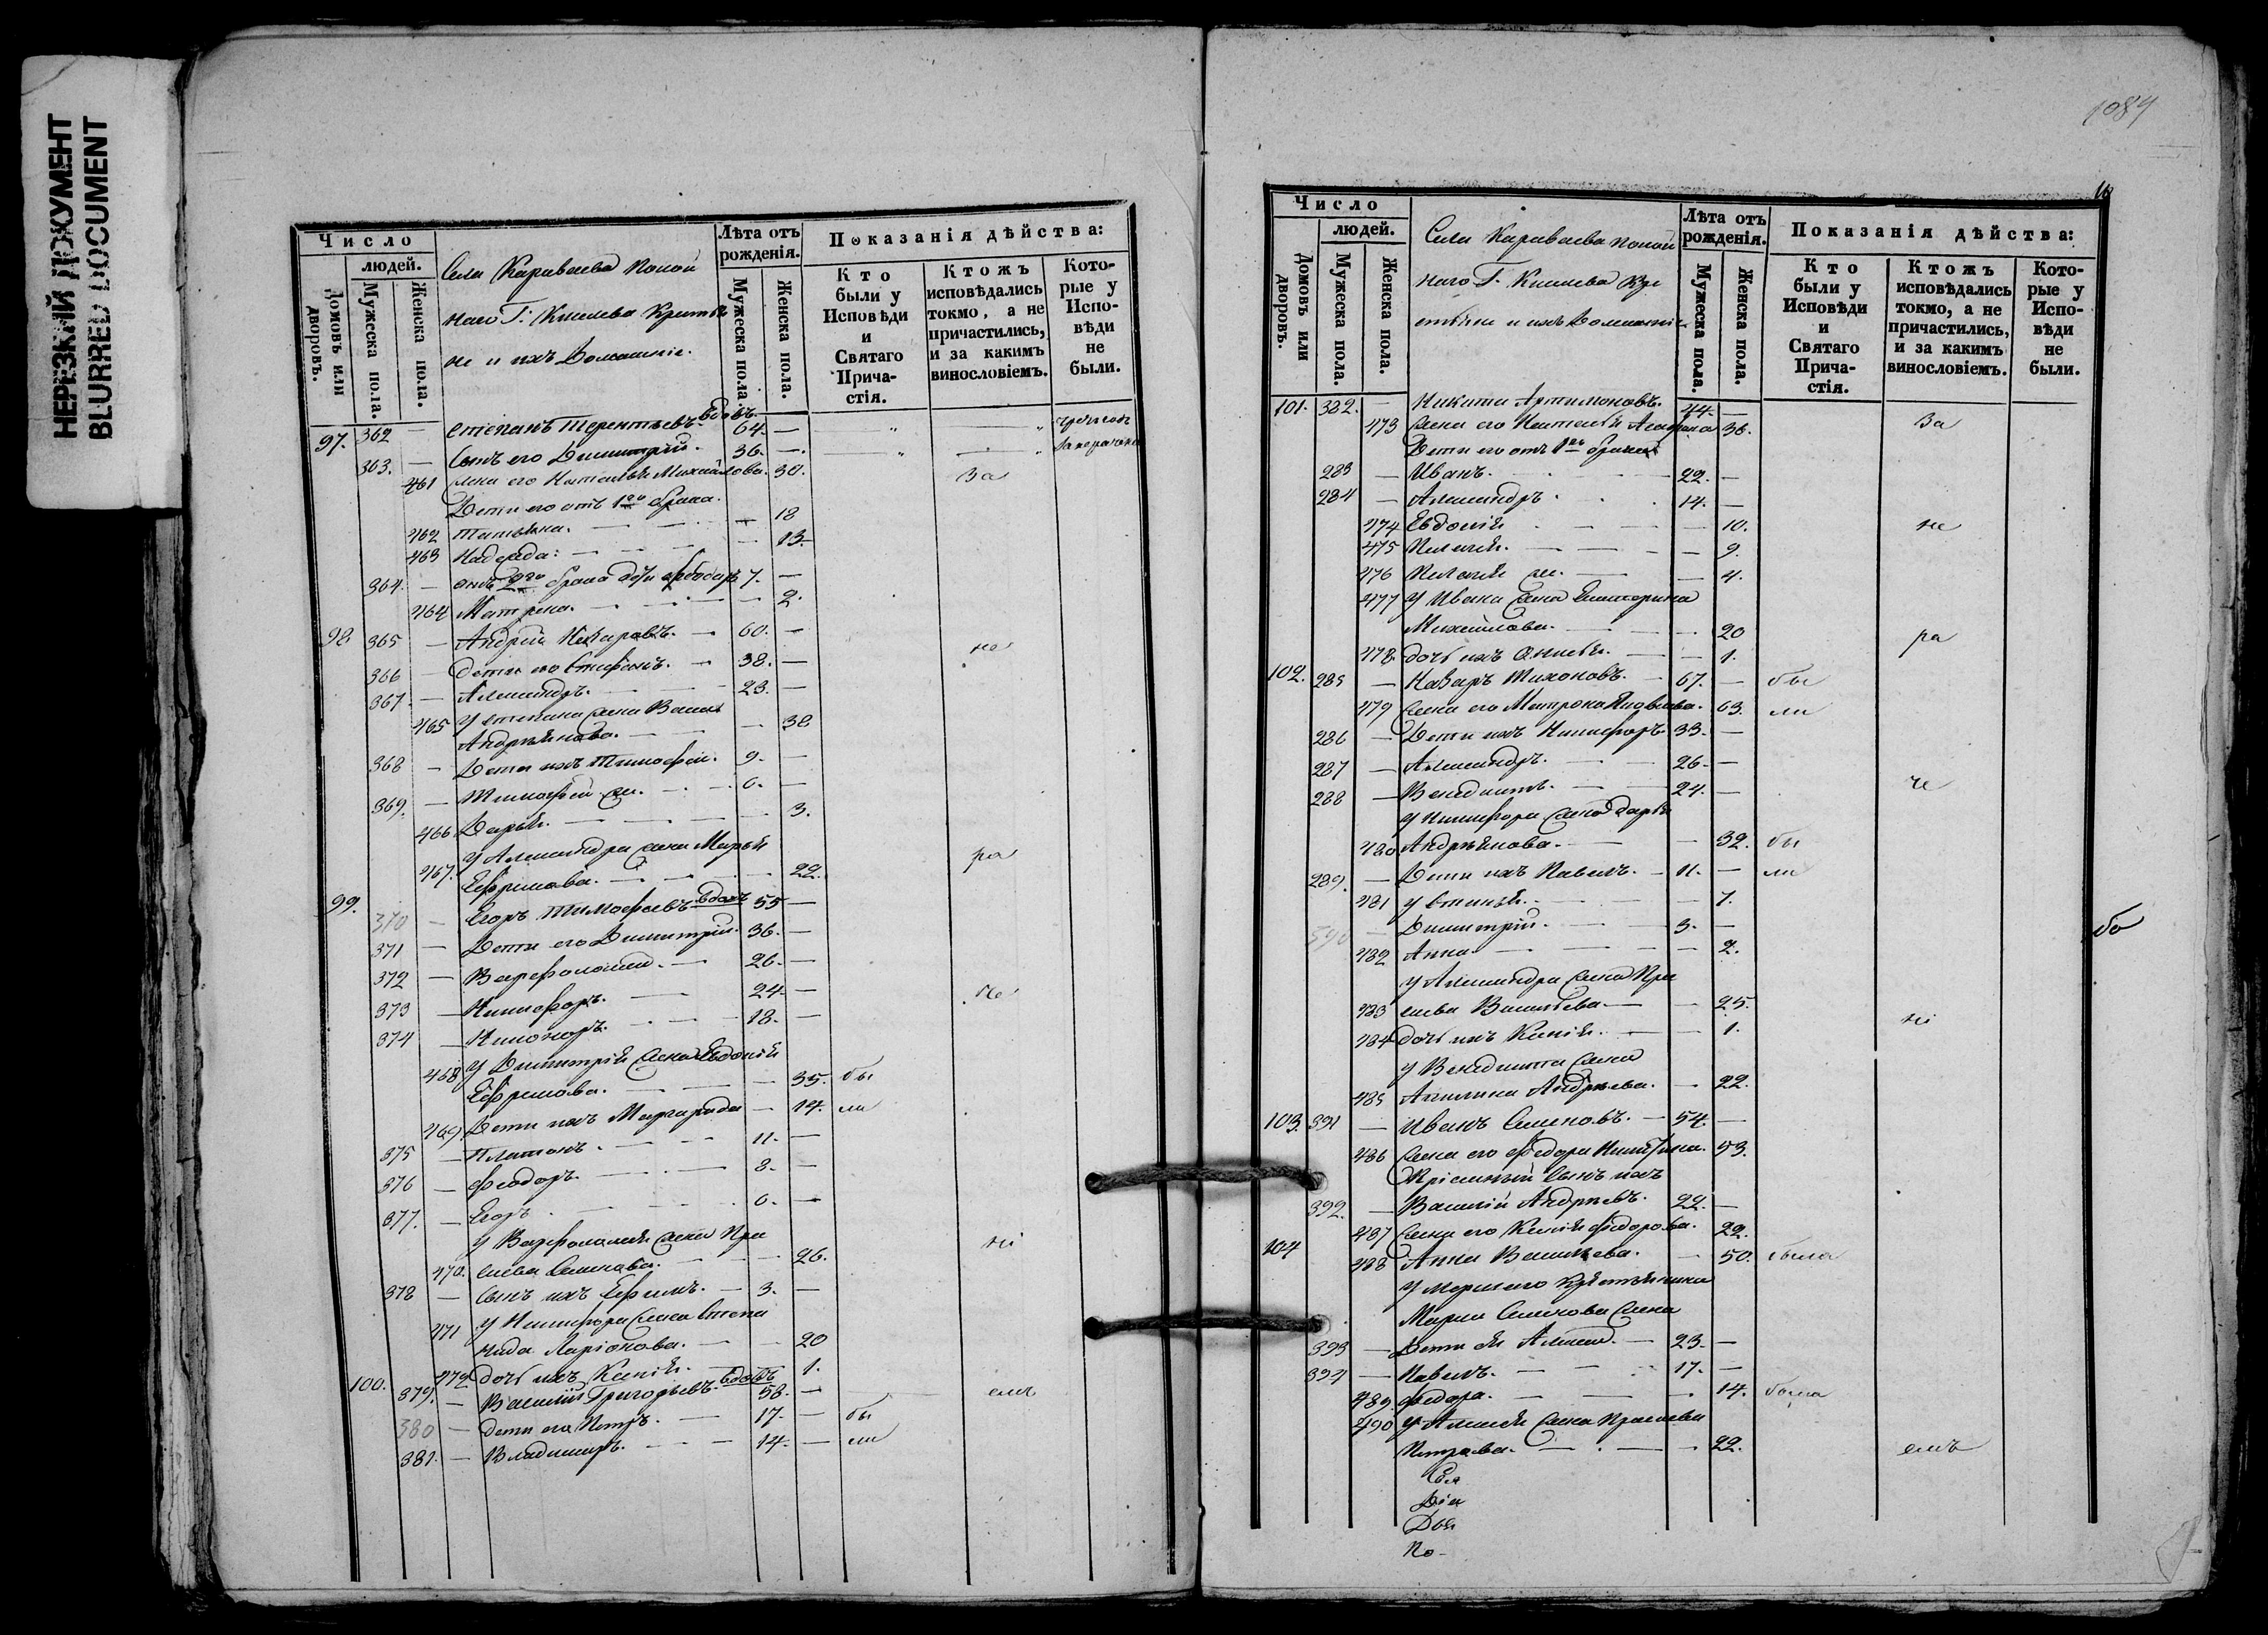 НЕРЕЗКИЙ ДОКУМЕНТ
BLURRED DOCUMENT
Число
людей.
Домовъ или дворовъ.
Мужеска пола.
Женска пола.
Села Караваева покой
наго Г. Киселева Крестья
не и ихъ Домашніе.
Лѣта отъ рожденія.
Мужеска пола.
Женска пола.
Показанія дѣйства:
Кто были у Исповѣди и Святаго Причастія.
Ктожъ исповѣдались токмо, а не причастились, и за какимъ винословіемъ.
Которые у Исповѣди не были.
97. 362 — Степанъ Терентьевъ вдовъ 64. —
363. — Сынъ его Димитрій. 36. —
461 жена его Наталья Михайлова. 30. За
Дети его отъ 1го брака.
462 Татьяна. — 18
463 Надежда: — 13.
364. — отъ 2го брака 7. —
464 Матрена. — 2.
98 365 — Андрей Назаровъ. — 60. —
366 — Дети его Стефанъ. — 38. — не
367 — Александръ. — 23. —
465 У Степана жена
Андреянова. — 38
368 — Дети ихъ Тимофей. 9. —
369. — Тимофей же. — 6. —
466 Дарья. — 3.
У Александра жена Марья
467. Ефремова. — 22. ра
99. 370 — Егоръ Тимофеевъ вдовъ 55 —
371 — Дети его Димитрій. 36. —
372 — Варфоломей. — 26. —
373 — Никифоръ. — 24. — че
374 — Никоноръ. — 18. —
468 У Димитрія жена Евдокія
Ефремова. — 35. бы
469. Дети ихъ Маргарида — 14. ли
375 — Платонъ. — 11. —
376 — Феодоръ. — 8. —
377. — Егоръ. — 6. —
У Варфоломея жена Пра
470. сковья Семенова. — 26. ні
378 — Сынъ ихъ Ефимъ. — 3. —
471 У Никифора жена Степа
нида Ларіонова. — 20
472 дочь ихъ Ксенія. — 1.
100. 379. — Василій Григорьевъ. вдовъ 58. — емъ
380 — дети его Петръ. — 17. — бы
381. — Владимиръ. — 14. — ли
1089
Число
людей.
Домовъ или дворовъ.
Мужеска пола.
Женска пола.
Села Караваева покой
наго Г. Киселева Кре
стьяне и ихъ Домашніе
Лѣта отъ рожденія.
Мужеска пола.
Женска пола.
Показанія дѣйства:
Кто были у Исповѣди и Святаго Причастія.
Ктожъ исповѣдались токмо, а не причастились, и за какимъ винословіемъ.
Которые у Исповѣди не были.
101. 382. — Никита Артамоновъ. 44. —
473 жена его Наталья 38. За
Дети его отъ 1го брака
283 — Иванъ. — 22. —
284 — Александръ. 14. —
474 Евдокія — 10. не
475 Пелагея. — 9.
476 Пелагея же. — 4.
477 У Ивана жена Екатерина
Михайлова. — 20 ра
478. дочь ихъ — 1.
102. 285 — Назаръ Тихоновъ. — 67. — бы
479 жена его Матрона Яковлева. 63. ли
286 — Дети ихъ Никифоръ. 33. —
287 — Александръ. — 26. —
288 — Венедиктъ. — 24. — че
У Никифора жена Дарья
480 Андреянова. — 32. бы
289. — Дети ихъ Павелъ. — 11. — ли
481 — 7.
390 — Димитрій. — 3. —
482 Анна — 2.
У Александра жена Пра
483 сковья Васильева — 25.
484 дочь ихъ Ксенія. — 1. ні
У Венедикта жена
485 Акилина Андреева. — 22.
103. 391 — Иванъ Семеновъ. — 54. —
486 жена его Федора Никитина. 53.
Пріемный сынъ ихъ
392. — Василій Андреевъ. 22. —
487 жена его Ксенія Федорова. 22.
104 488 Анна Васильева. — 50. была
У Марка Семенова жена
393 — Дети ея Алексей. — 23 —
394 — Павелъ. — 17. —
489. Федора. — 14. была
490 У Алексея жена Прасковья
Петрова. — 22. емъ
Діа
По-